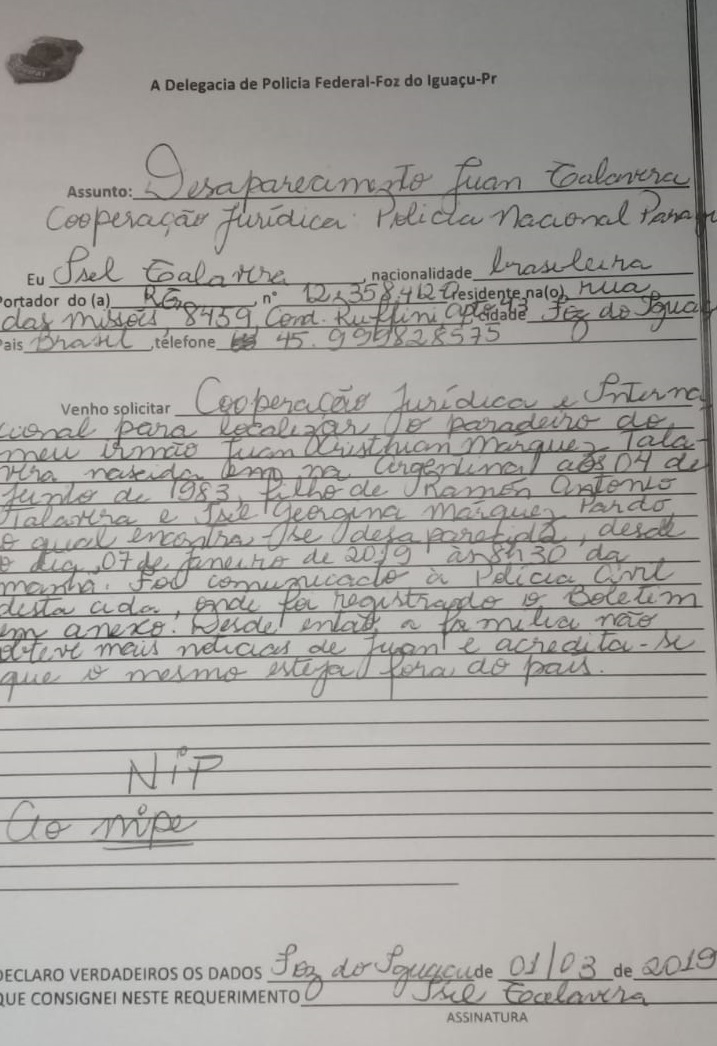 A Delegacia de Policia Federal-Foz do Iguaçu-Pr
Assunto: Desaparecimento Juan Talavera
Cooperação Jurídica: Policia Nacional Para
Eu Isel Talavera, nacionalidade brasileira
Portador do (a) RG, n° 12.358.412 residente na(o) rua
das missões, 8459, Cond. Ruffini apto cidade Foz do Iguaç
Pais Brasil, télefone 45. 999828575
Venho solicitar Cooperação Jurídica e Interna
cional para localizar o paradeiro do
meu irmão Juan Cristhian Marquez Tala-
vera nascido em na Argentina, aos 04 de
Junho de 1983, filho de Ramón Antonio
Talavera e Isel Georgina Marquez Pardo,
o qual encontra-se desaparecido, desde
o dia, 07 de janeiro de 2019 às 8h30 da
manhã. Foi comunicado à Polícia Civil
desta cida, onde foi registrado o Boletim
em anexo. Desde então, a família não
obteve mais notícias de Juan e acredita-se
que o mesmo esteja fora do país.
NIP
Ao nipe
DECLARO VERDADEIROS OS DADOS Foz do Iguaçu de 01/03 de 2019
QUE CONSIGNEI NESTE REQUERIMENTO Isel Talavera
ASSINATURA